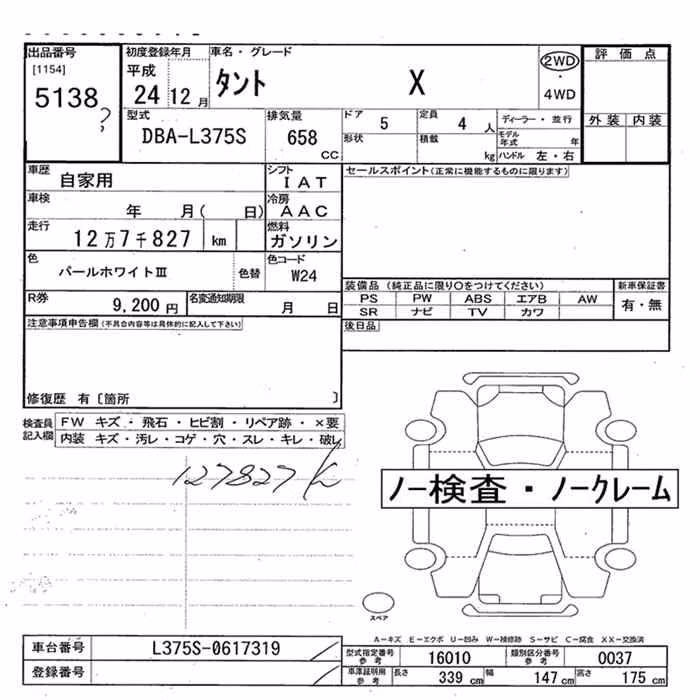 出品番号
[1154]
5138
?
初度登録年月
平成
24 12 月
車名・グレード
タント X
2WD
・
4WD
評価点
外装 内装
型式
DBA-L375S
排気量
658
CC
ドア 5
定員 4 人
形状
積載
kg
ディーラー・並行
モデル年式 年
ハンドル 左・右
車歴
自家用
シフト
IAT
車検
年 月( 日)
冷房
AAC
走行
12万7千827 km
燃料
ガソリン
色
パールホワイトⅢ
色替
色コード
W24
R券
9,200 円
名変通知期限
月 日
セールスポイント(正常に機能するものに限ります)
装備品 (純正品に限り○をつけてください)
新車保証書
PS PW ABS エアB AW
SR ナビ TV カワ
有・無
後日品
注意事項申告欄(不具合内容等は具体的に記入して下さい)
修復歴 有〔箇所 〕
検査員
記入欄
FW キズ・飛石・ヒビ割・リペア跡・×要
内装 キズ・汚レ・コゲ・穴・スレ・キレ・破レ
127827K
ノー検査・ノークレーム
スペア
A-キズ E-エクボ U-凹み W-補修跡 S-サビ C-腐食 XX-交換済
車台番号
L375S-0617319
登録番号
型式指定番号
参考
16010
類別区分番号
参考
0037
車庫証明用
参考
長さ 339 cm 幅 147 cm 高さ 175 cm